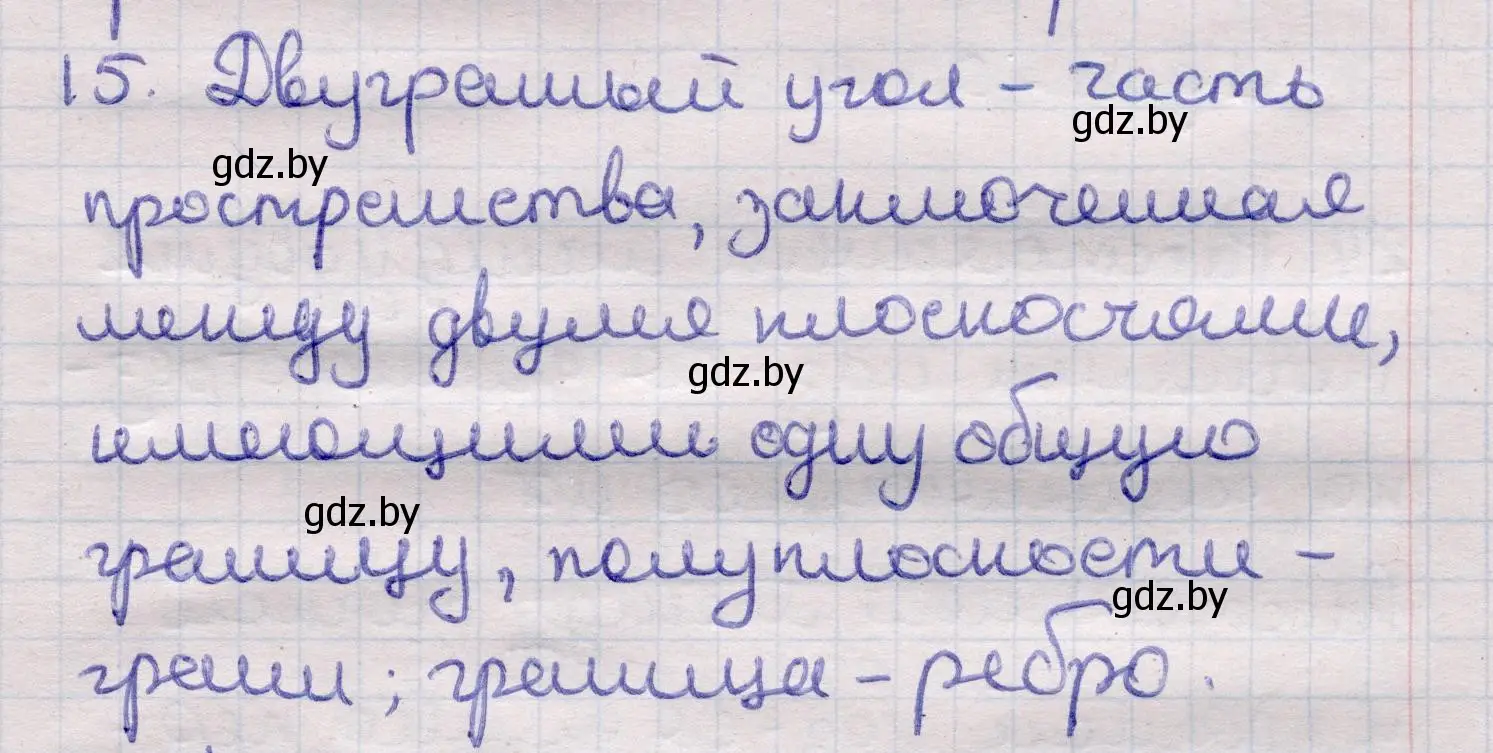 15. Двугранный угол – часть
gdz.by
gdz.by
пространства, заключенная
между двумя плоскосчями,
gdz.by
имеющими одну общую
gdz.by
границу, полуплоскости –
gdz.by
грани; граница – ребро.